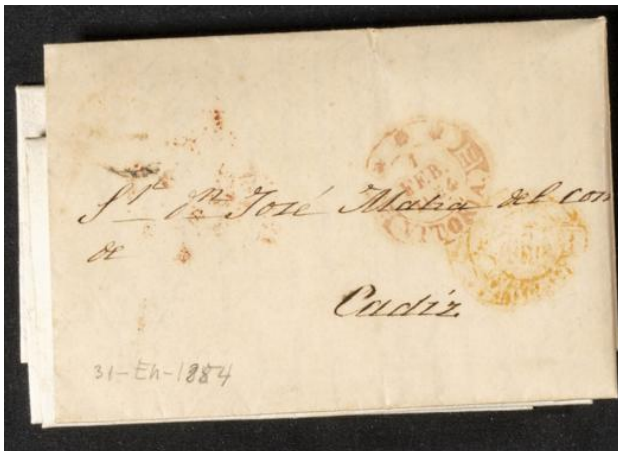 1
FEB.
Sr. Dn. José Matia del Con
de
Cadiz
31-En-1854